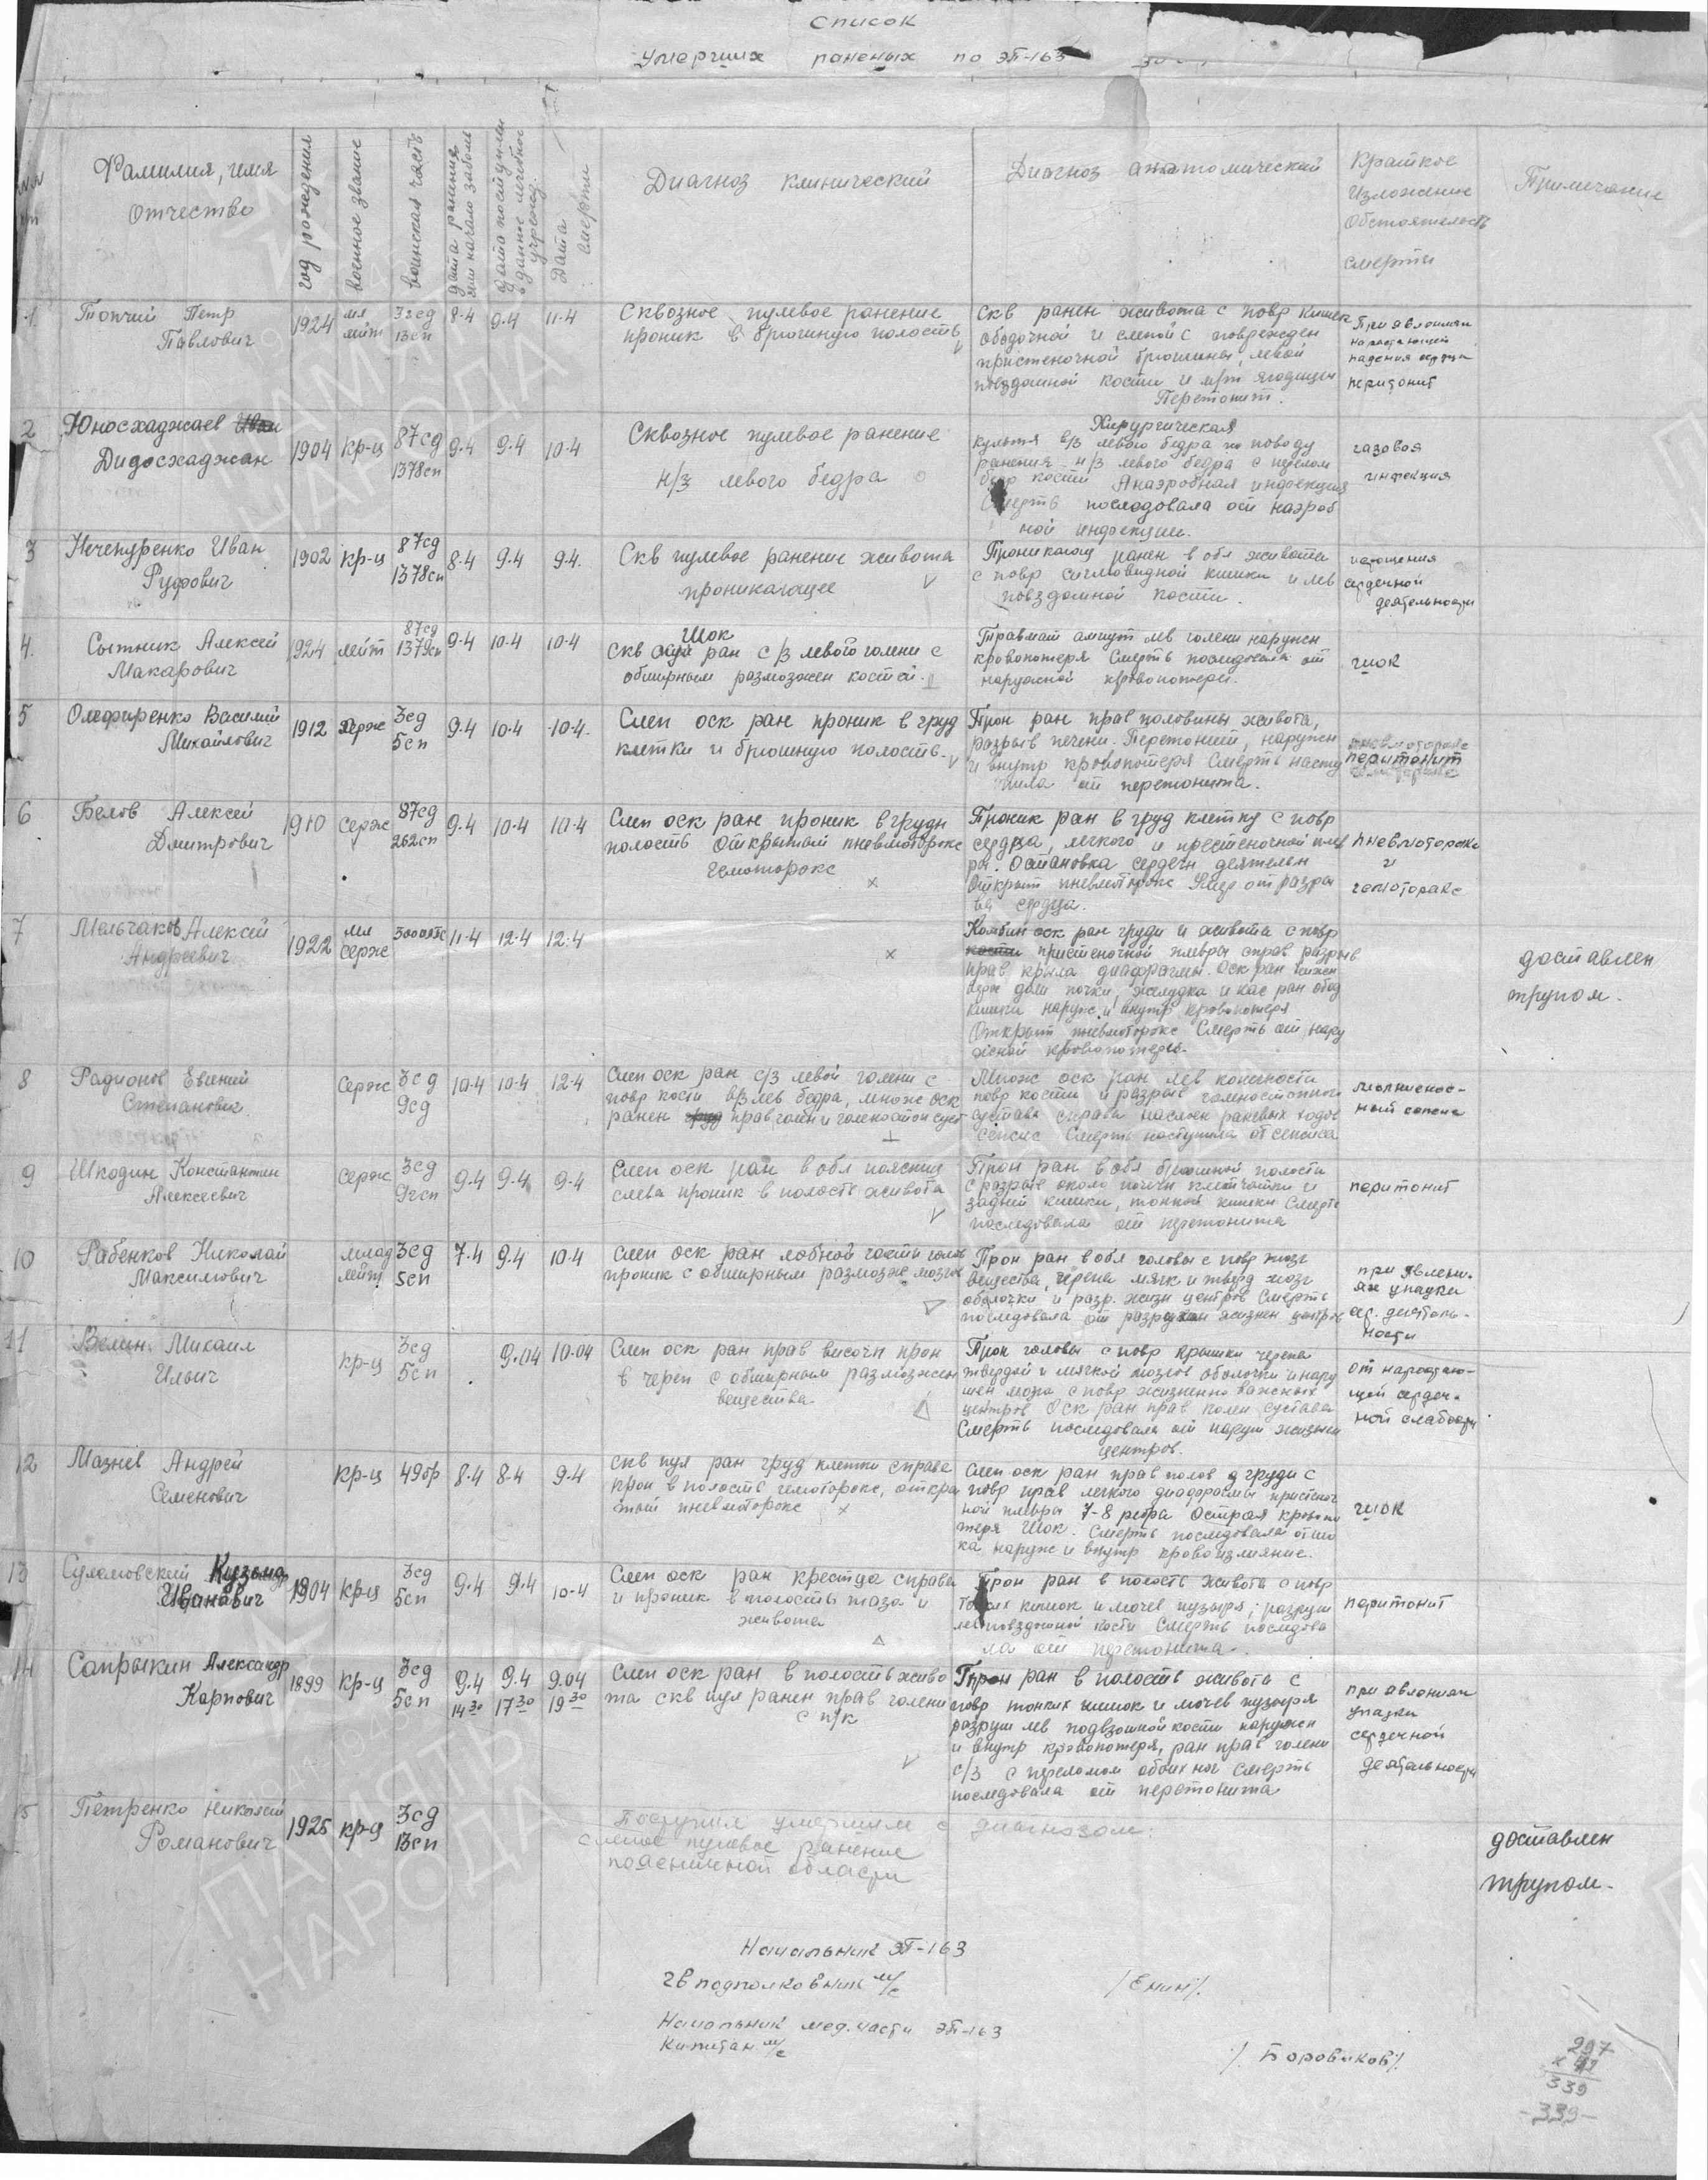 Список
Умерших раненых по ЭП-163
Фамилия, имя
Отчество
год рождения
военное звание
воинская часть
дата ранения
или начало заболев
Дата поступлен
в данное лечебное
учрежд.
Дата
смерти
Диагноз клинический
Диагноз анатомический
Краткое
Изложение
Обстоятельств
смерти
Примечание
1 Топчий Петр
Павлович
1924
мл
лейт
3гсд
13сп
8-4 9-4 11-4
Сквозное пулевое ранение
проник в брюшную полость
Скв ранен живота с повр кишек
ободочной и слепой с поврежден
пристеночной брюшины, левой
повздошной кости и м/т ягодицы
Перетонит.
При явлениях
нарастающей
падения сердца
перитонит
2 Юносхаджаев
Дидосхаджан
1904 кр-ц
87сд
1378сп
9-4 9-4 10-4
Сквозное пулевое ранение
н/з левого бедра
Хирургическая
культя в/з левого бедра по поводу
ранения н/з левого бедра с перелом
бедр кости Анаэробная инфекция
Смерть последовала от наэроб
ной инфекции.
газовая
инфекция
3 Нечепуренко Иван
Руфович
1902 кр-ц
87сд
1378сп
8-4 9-4 9-4.
Скв пулевое ранение живота
проникающее
Проникающ ранен в обл живота
с повр сигмовидной кишки и лев
повздошной кости.
сердечной
деятельности
4. Сытник Алексей
Макарович
1924 лейт
87сд
1379сп
9-4 10-4 10-4
Шок
Скв ран с/з левого голени с
обширным размозжен костей.
Травмат ампут лев голени наружн
кровопотеря Смерть последовала от
наружной кровопотери.
шок
5 Олефиренко Василий
Михайлович
1912 серж
3сд
5сп
9-4 10-4 10-4.
Слеп оск ран проник в груд
клетки и брюшную полость.
Прон ран прав половины живота,
разрыв печени. Перетонит, наружн
и внутр кровопотеря Смерть насту
пила от перетонита.
перитонит
6 Белов Алексей
Дмитрович
1910 серж
87сд
262сп
9-4 10-4 10-4
Слеп оск ран проник в грудн
полость открытый пневмоторокс
гемоторокс
Проник ран в груд клетку с повр
сердца, легкого и престеночной плев
ры. Остановка сердечн деятельн
Открыт пневмоторокс от разры
ва сердца.
пневмоторокс
и
гемоторакс
7 Мельчаков Алексей
Андреевич
1922
мл
серж
11-4 12-4 12-4
Комбин оск ран груди и живота с повр
пристеночной плевры справ разрыв
прав крыла диафрагмы. Оск ран нижн
доли почки, желудка и кас ран обод
кишки наруж. и внутр кровопотеря
Открыт пневмоторокс Смерть от нару
жной кровопотери.
доставлен
трупом.
8 Радионов Евгений
Степанович
Серж
3сд
9сд
10-4 10-4 12-4
Слеп оск ран с/з левой голени с
повр кости в/з лев бедра, множ оск
ранен прав голен и голеностоп суст
Множ оск ран лев конечности
повр кости и разрыв голеностопного
сустава справа раневых ходов
сепсис Смерть наступила от сепсиса
молниенос-
ный сепсис
9 Шкодин Константин
Алексеевич
Серж
3сд
9гсп
9-4 9-4 9-4
Слеп оск ран в обл поясниц
слева проник в полость живота
Прон ран в обл брюшной полости
с разрыв около почечн клетчатки и
задней кишки, тонкой кишки Смерть
последовала от перетонита
перитонит
10 Рабенков Николай
Максимович
млад
лейт
3сд
5сп
7-4 9-4 10-4
Слеп оск ран лобной части голов
проник с обширным размозже мозгов
Прон ран в обл головы с повр мозг
вещества, черепа мягк и тверд мозг
оболочки и разр. жизн центров Смерть
последовала от разрушен жизнен центров
при явлени-
ях упадки
сер. деятель-
ности
11 Велин Михаил
Ильич
кр-ц
3сд
5сп
9.04 10.04
Слеп оск ран прав височн прон
в череп с обширным размозжен
вещества
Прон головы с повр крышки черепа
твердой и мягкой мозгов оболочки и нару
шен мозга с повр жизненно важных
центров Оск ран прав колен сустава
Смерть последовала от наруш жизнен
центров.
от нарастаю-
щей сердеч-
ной слабости
12 Мазнев Андрей
Семенович
кр-ц 49бр 8-4 8-4 9-4
Скв пул ран груд клетки справа
прон в полость гемоторокс, откры
тый пневмоторокс
Слеп оск ран прав полов груди с
повр прав легкого диафрагмы пристеноч
ной плевры 7-8 ребра Острая кровопо
теря Шок. Смерть последовала от шо
ка наруж и внутр кровоизлияние.
шок
13 Сулимовский Кузьма
Иванович
1904 кр-ц
3сд
5сп
9-4 9-4 10-4
Слеп оск ран крестца справа
и проник в полость таза и
живота
Прон ран в полость живота с повр
тонких кишок и мочев пузыря, разруш
лев повздошной кости Смерть последова
ла от перетонита.
перитонит
14 Сапрыкин Александр
Карпович
1899 кр-ц
3сд
5сп
9-4
14 30
9.4
17 30
9.04
19 30
Слеп оск ран в полость живо
та скв пул ранен прав голени
с п/к
Прон ран в полость живота с
повр тонких кишок и мочев пузыря
разруш лев подвзошной кости наружн
и внутр кровопотеря, ран прав голени
с/з с переломом обоих ног Смерть
последовала от перетонита
при явлениях
упадки
сердечной
деятельности
15 Петренко Николай
Романович
1925 кр-ц
3сд
13сп
Поступил умершим с диагнозом:
слепое пулевое ранение
поясничной области
доставлен
трупом.
Начальник ЭП-163
гв подполковник м/с
/Енин/.
Начальник мед. части ЭП-163
Капитан м/с
/. Боровиков/.
297
339
-339-